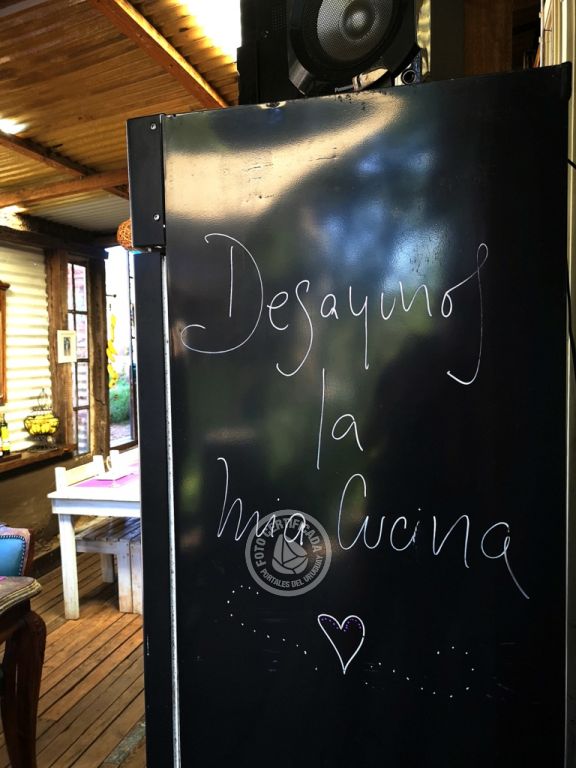 Panasonic
Desayunos
la
mia Cucina
FOTO CERTIFICADA
PORTALES DEL URUGUAY